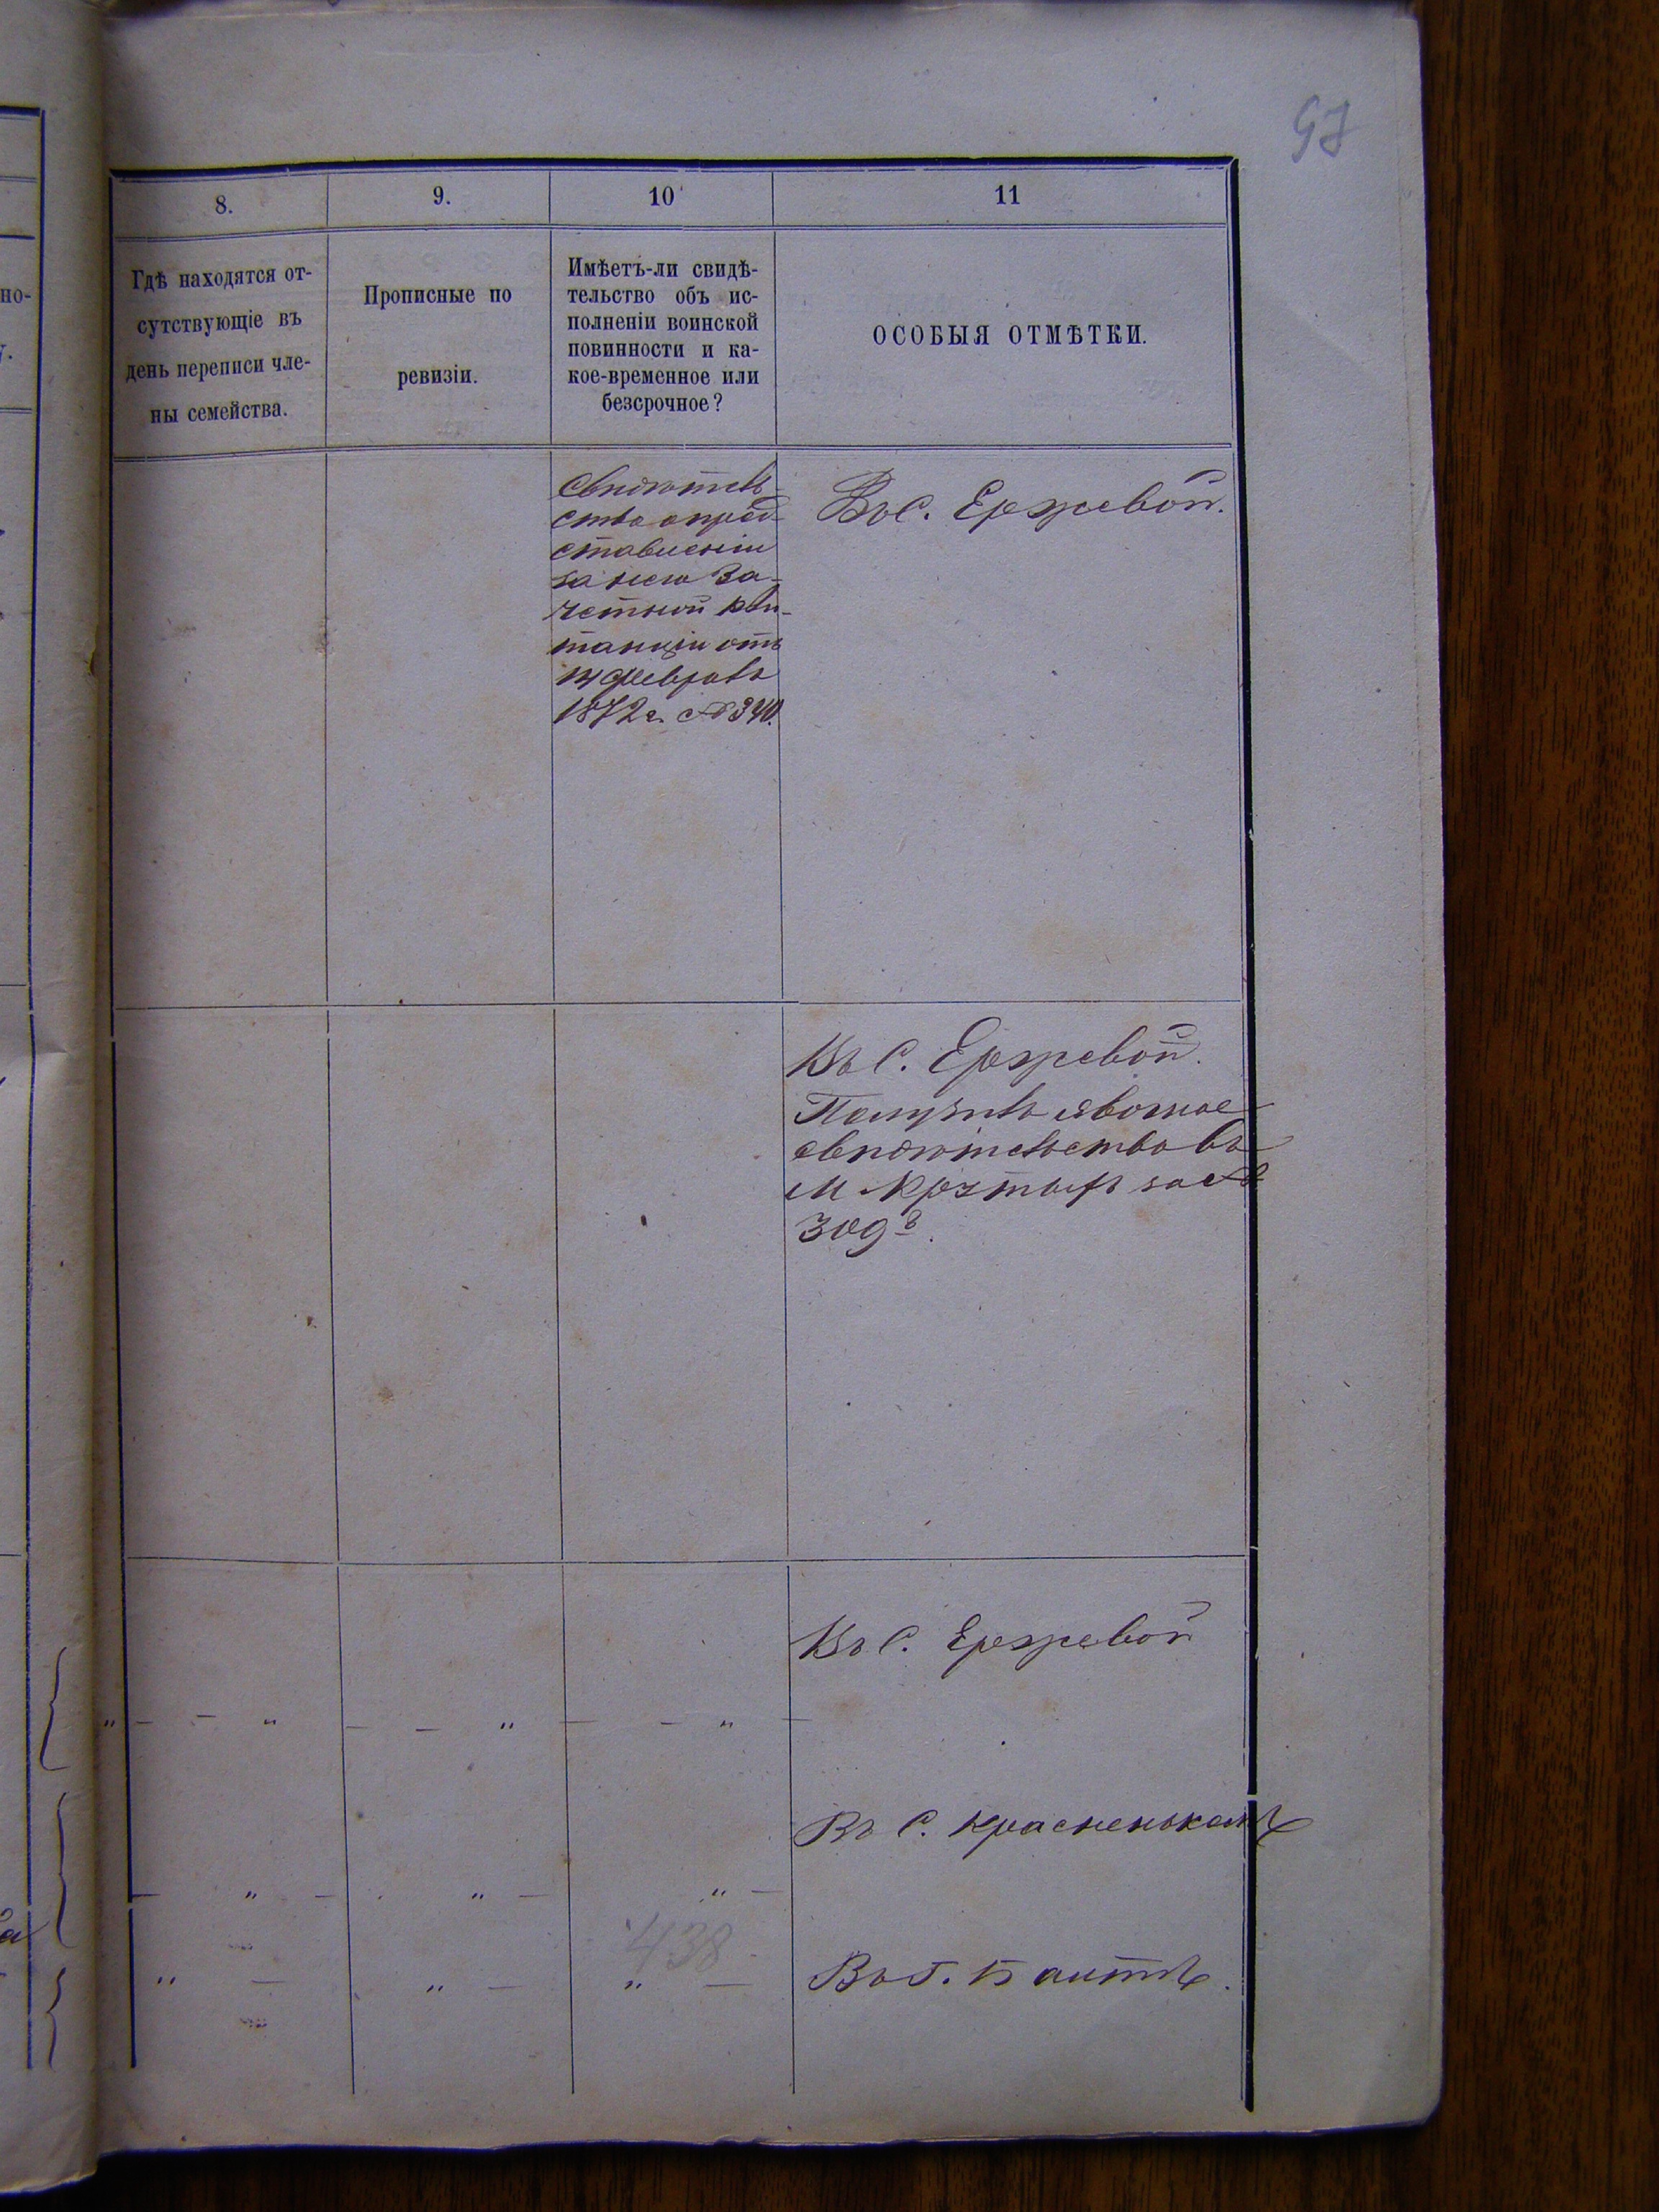 97
8.
9.
10
11
Гдѣ находятся от-
сутствующіе въ
день переписи чле-
ны семейства.
Прописные по
ревизіи.
Имѣетъ-ли свидѣ-
тельство объ ис-
полненіи воинской
повинности и ка-
кое-временное или
безсрочное?
ОСОБЫЯ ОТМѢТКИ.
Свидѣтель-
ство о пред-
ставленіи
за него за-
четной кви-
танціи отъ
февраля
1872 г. № 340.
Въ С. Ержевой.
Въ С. Ержевой.
Получилъ явочное
свидѣтельство въ
М. за №
309
Въ С. Ержевой
" — — " — — " — — " —
Въ С. Красненькомъ
— " — " — " —
438
" — " — " —
Въ Г. Балтѣ.
но-
у.